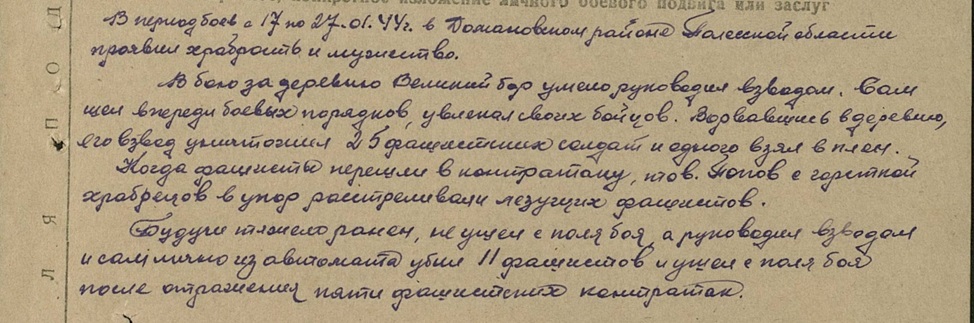 конкретное изложение личного боевого подвига или заслуг
В период боев с 17 по 27.01.44г. в Домановском районе Полесской области
проявил храбрость и мужество.
В бою за деревню Великий бор умело руководил взводом. Сам
шел впереди боевых порядков, увлекал своих бойцов. Ворвавшись в деревню,
его взвод уничтожил 25 фашистских солдат и одного взял в плен.
Когда фашисты перешли в контратаку, тов. Попов с горсткой
храбрецов в упор расстреливали лезущих фашистов.
Будучи тяжело ранен, не ушел с поля боя, а руководил взводом
и сам лично из автомата убил 11 фашистов и ушел с поля боя
после отражения пяти фашистских контратак.
Д
О
П
Я
Л